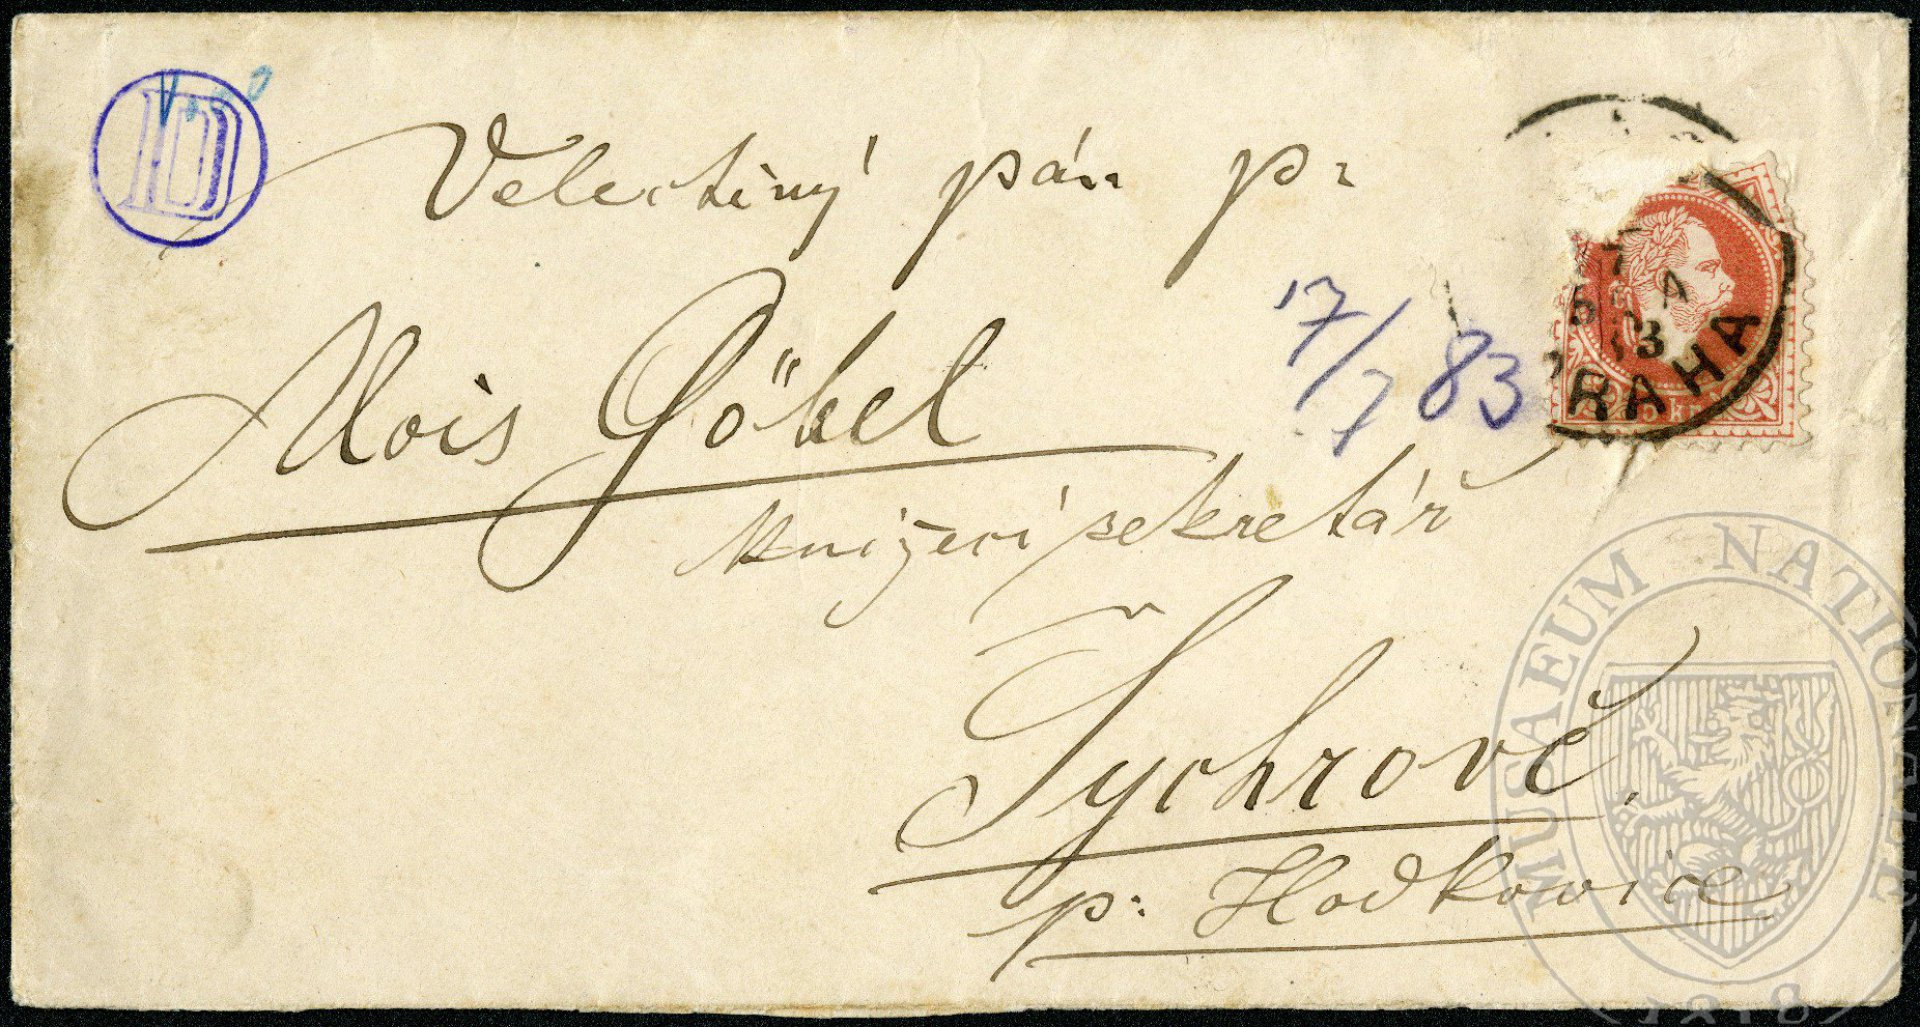 D
Velectěný pán p:
Alois Göbel
17/7 83
knížecí sekretář
Sychrově,
p: Hodkovice
PRAHA
kr
MUSAEUM NATIONALE
1818